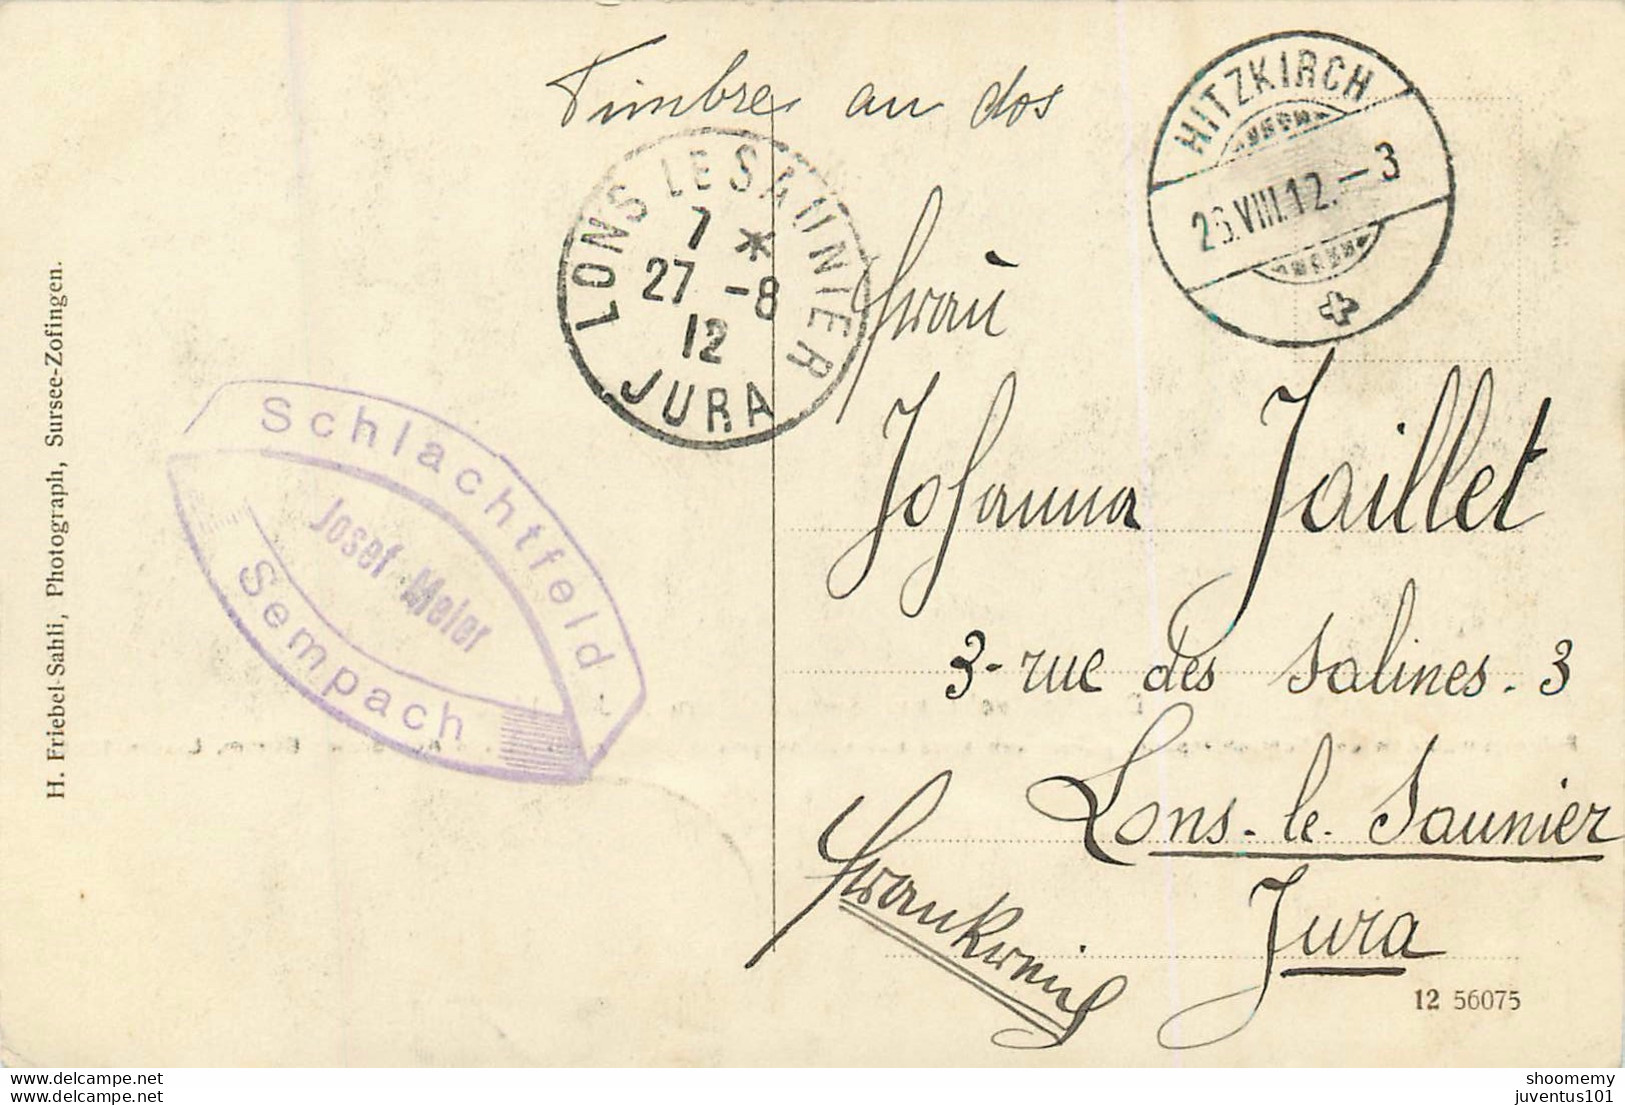 Timbre au dos
HITZKIRCH
26.VIII.12.-3
LONS LE SAUNIER
7 *
27 -8
12
JURA
Frau
Johanna Jaillet
3 - rue des Salines. 3
Lons-le-Saunier
Jura
Frankreich
Schlachtfeld
Josef Meier
Sempach
H. Friebel-Sahli, Photograph, Sursee-Zofingen.
12 56075
play.juventus101.delcampe.net
shoomemy
juventus101